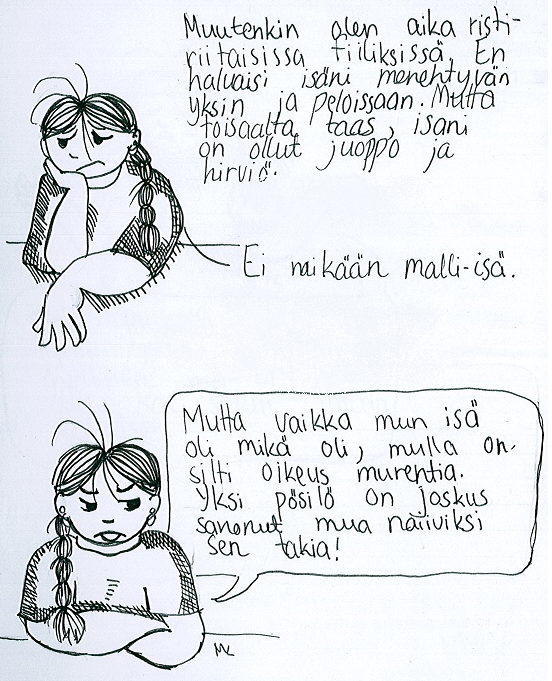 Muutenkin olen aika risti-
riitaisissa fiiliksissä. En
haluaisi isäni menehtyvän
yksin ja peloissaan. Mutta
toisaalta taas, isäni
on ollut juoppo ja
hirviö.
Ei mikään malli-isä.
Mutta vaikka mun isä
oli mikä oli, mulla on
silti oikeus murehtia.
Yksi pösilö on joskus
sanonut mua naiiviksi
sen takia!
MK